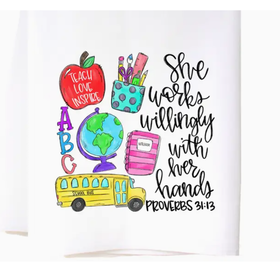 TEACH
LOVE
INSPIRE
A
B
C
SCHOOL BUS
She
works
willingly
with
her
hands
PROVERBS 31:13